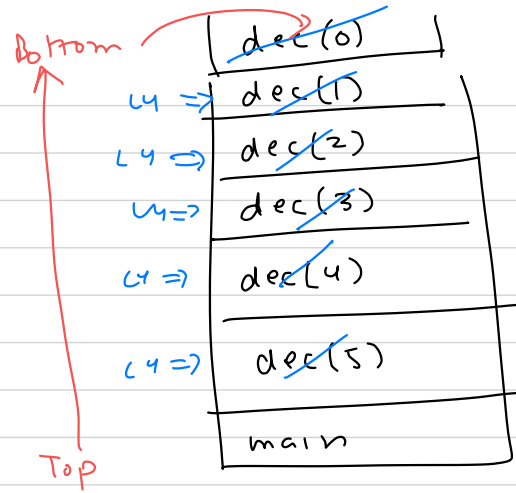 Bottom dec(0)
L4 => dec(1)
L4 => dec(2)
L4 => dec(3)
L4 => dec(4)
L4 => dec(5)
main
Top